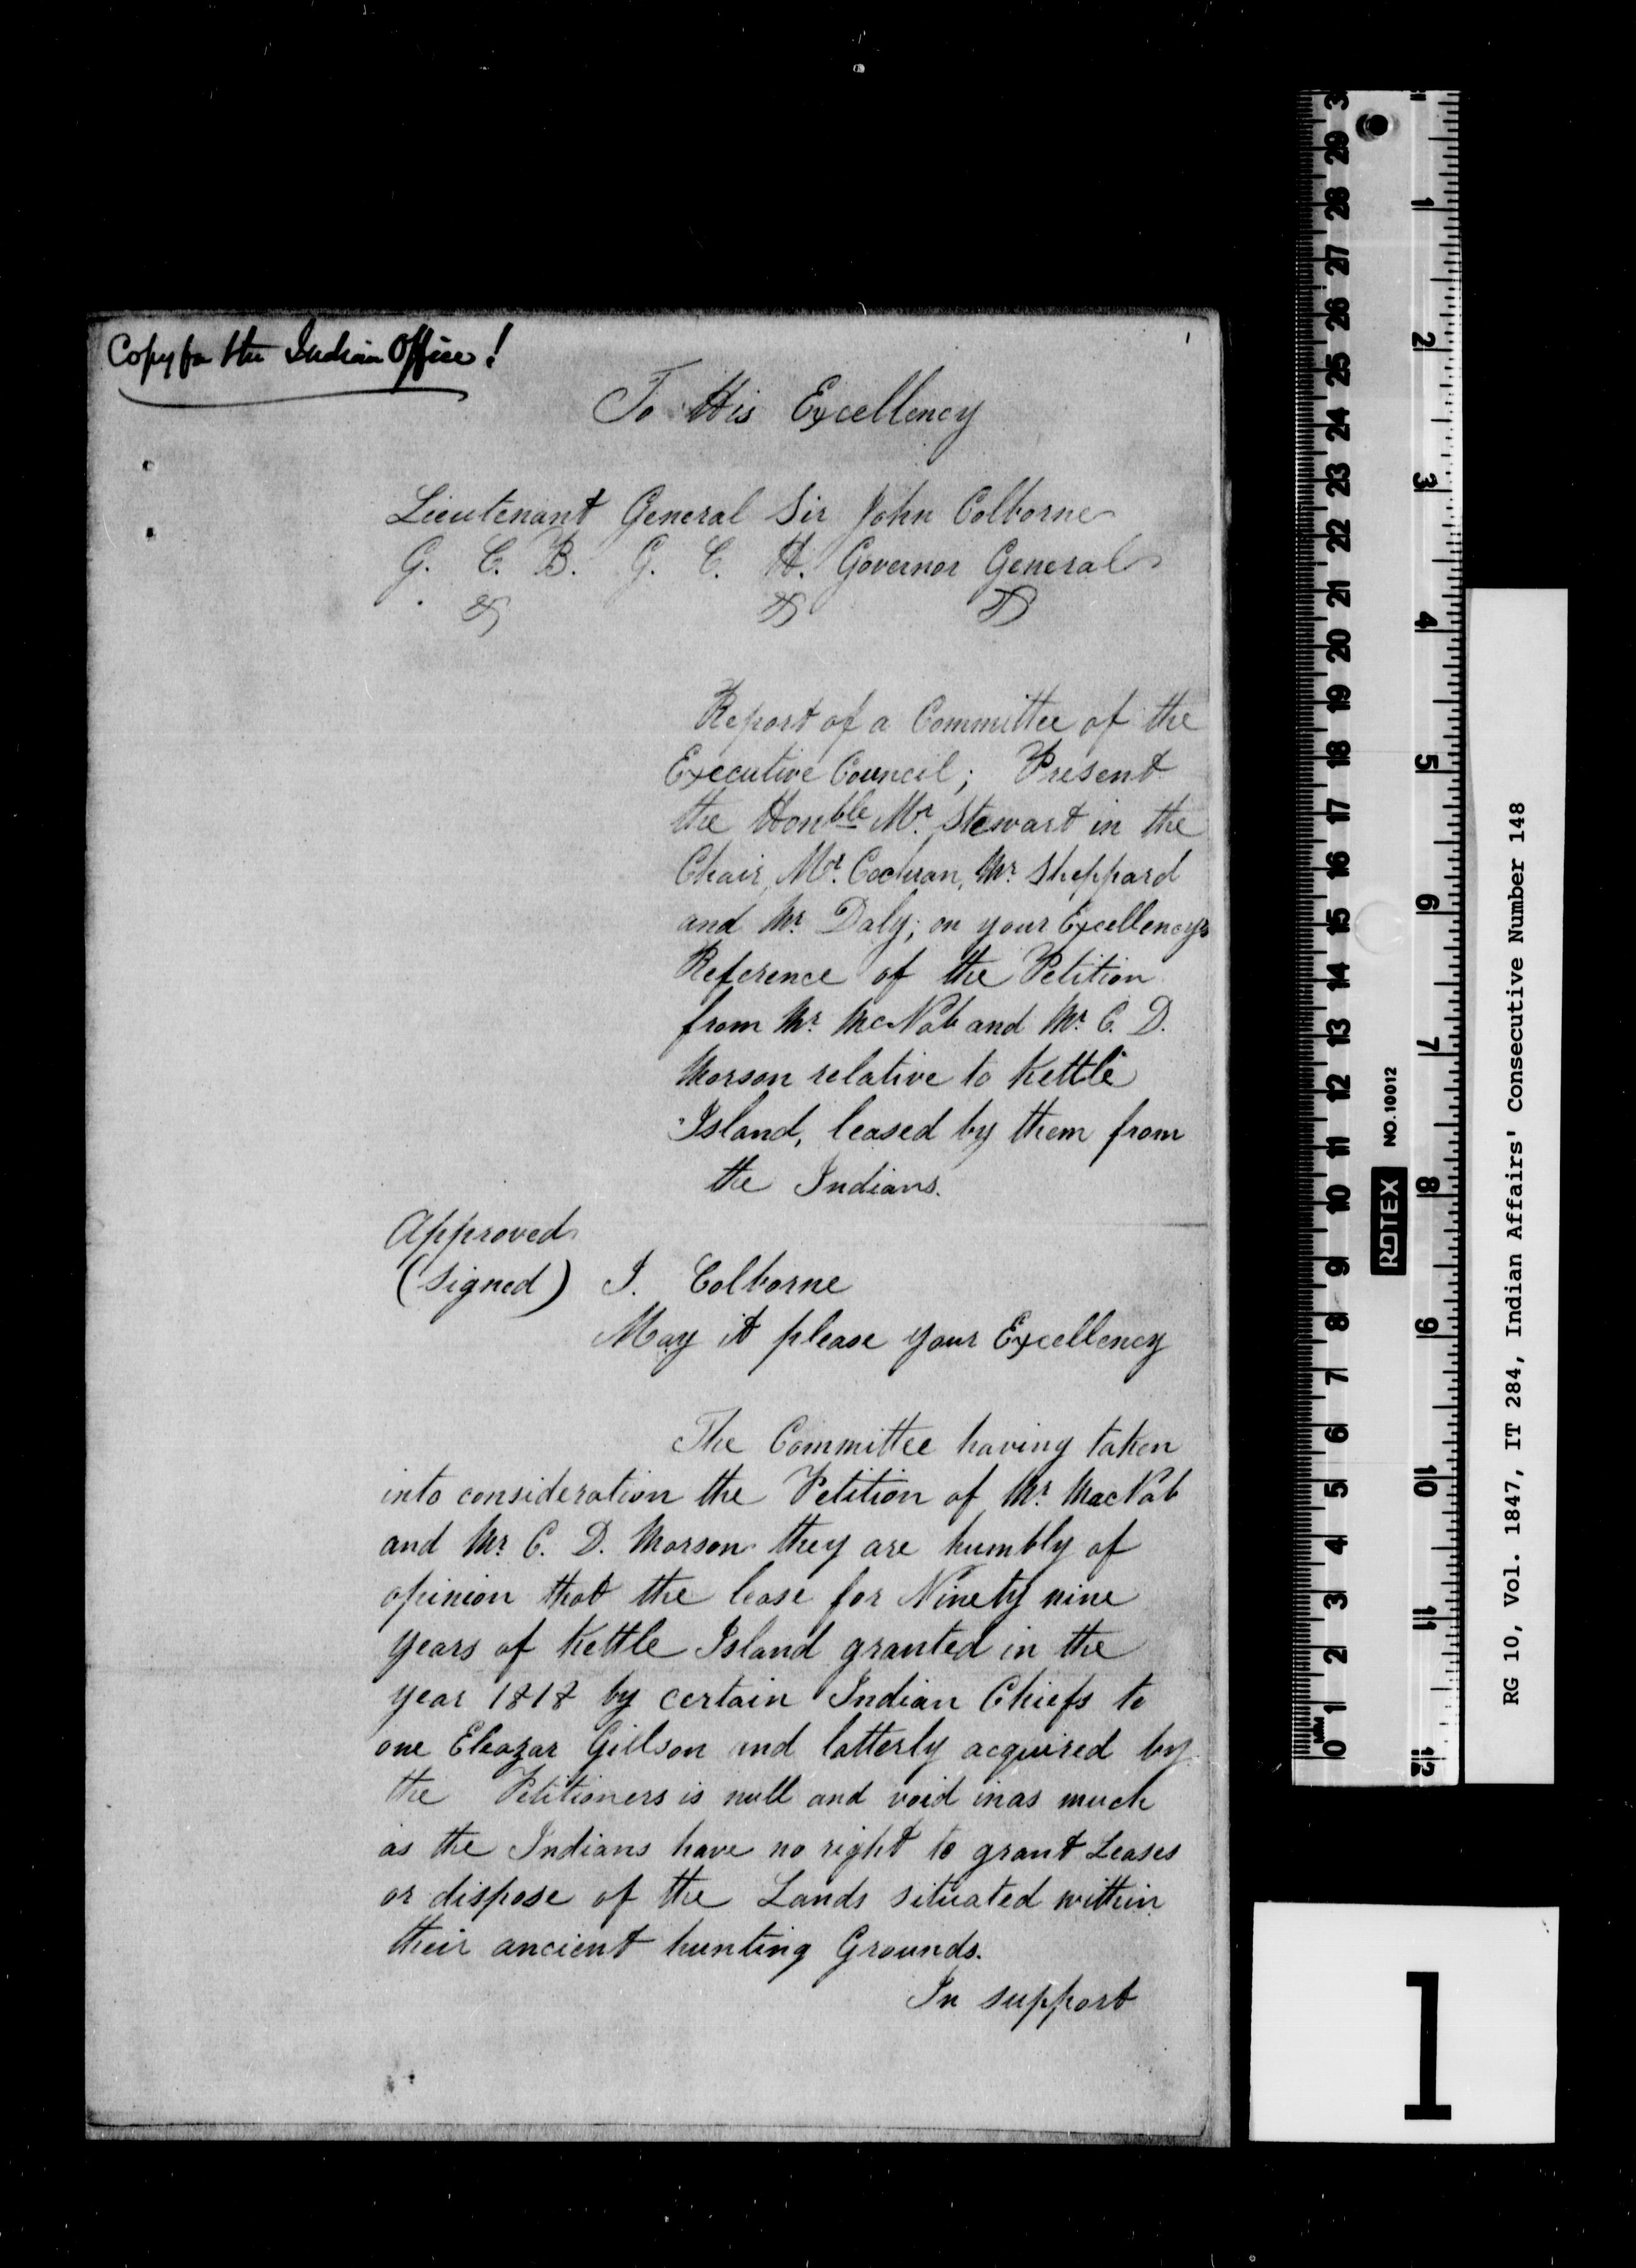 Copy for the Indian Office!
1
To His Excellency
Lieutenant General Sir John Colborne
G. C. B. G. C. H. Governor General
&c &c &c
Report of a Committee of the
Executive Council; Present
the Honble Mr. Stewart in the
Chair, Mr. Cochran, Mr. Sheppard
and Mr. Daly; on your Excellencys
Reference of the Petition
from Mr. McNab and Mr. C. D.
Morson relative to Kettle
Island, leased by them from
the Indians.
Approved
(Signed) J. Colborne
May it please your Excellency
The Committee having taken
into consideration the Petition of Mr. MacNab
and Mr. C. D. Morson they are humbly of
opinion that the lease for Ninety nine
years of Kettle Island granted in the
year 1818 by certain Indian Chiefs to
one Eleazar Gillson and latterly acquired by
the Petitioners is null and void inas much
as the Indians have no right to grant Leases
or dispose of the Lands situated within
their ancient hunting Grounds.
In support
RG 10, Vol. 1847, IT 284, Indian Affairs' Consecutive Number 148
ROTEX NO.10012
3 29 28 27 26 25 24 23 22 21 20 19 18 17 16 15 14 13 12 11 10 9 8 7 6 5 4 3 2 1 0
1 2 3 4 5 6 7 8 9 10 11 12
1